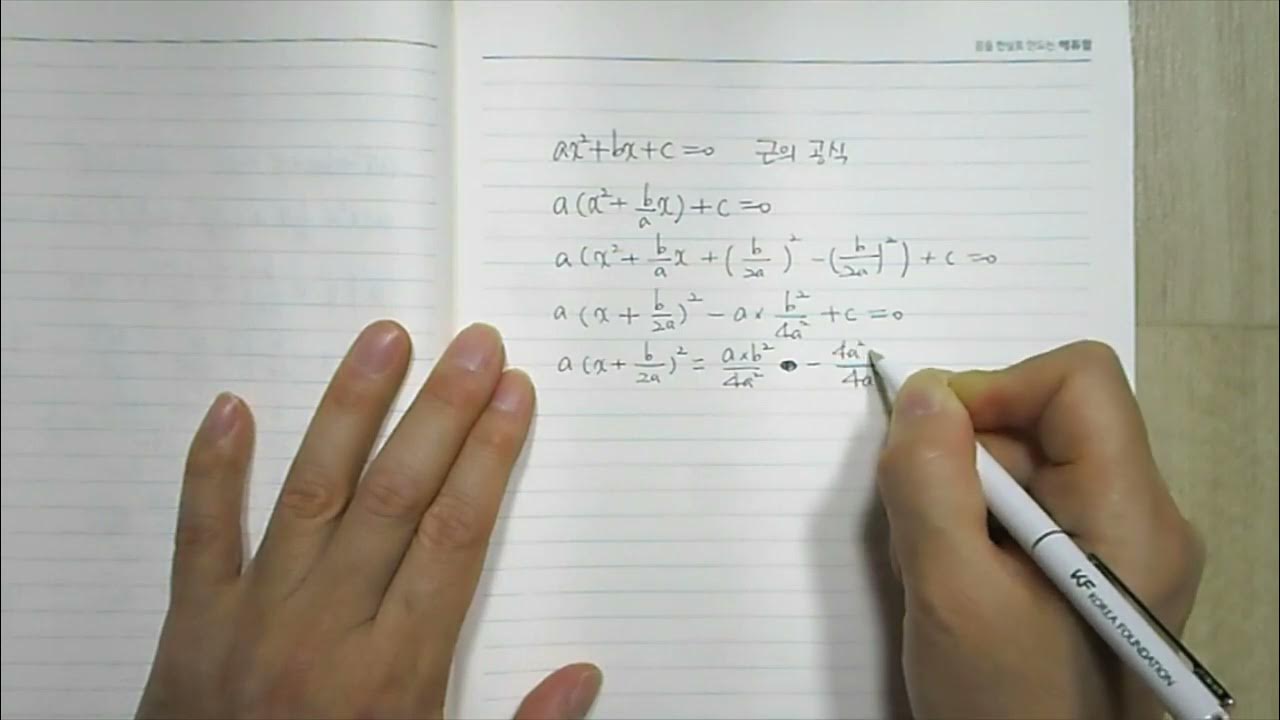 꿈을 현실로 만드는 에듀윌
ax²+bx+c=0 근의 공식
a(x²+b/a x)+c=0
a(x²+b/a x+(b/2a)²-(b/2a)²)+c=0
a(x+b/2a)²-a×b²/4a²+c=0
a(x+b/2a)²=a×b²/4a² - 4a²/4a
KF KOREA FOUNDATION